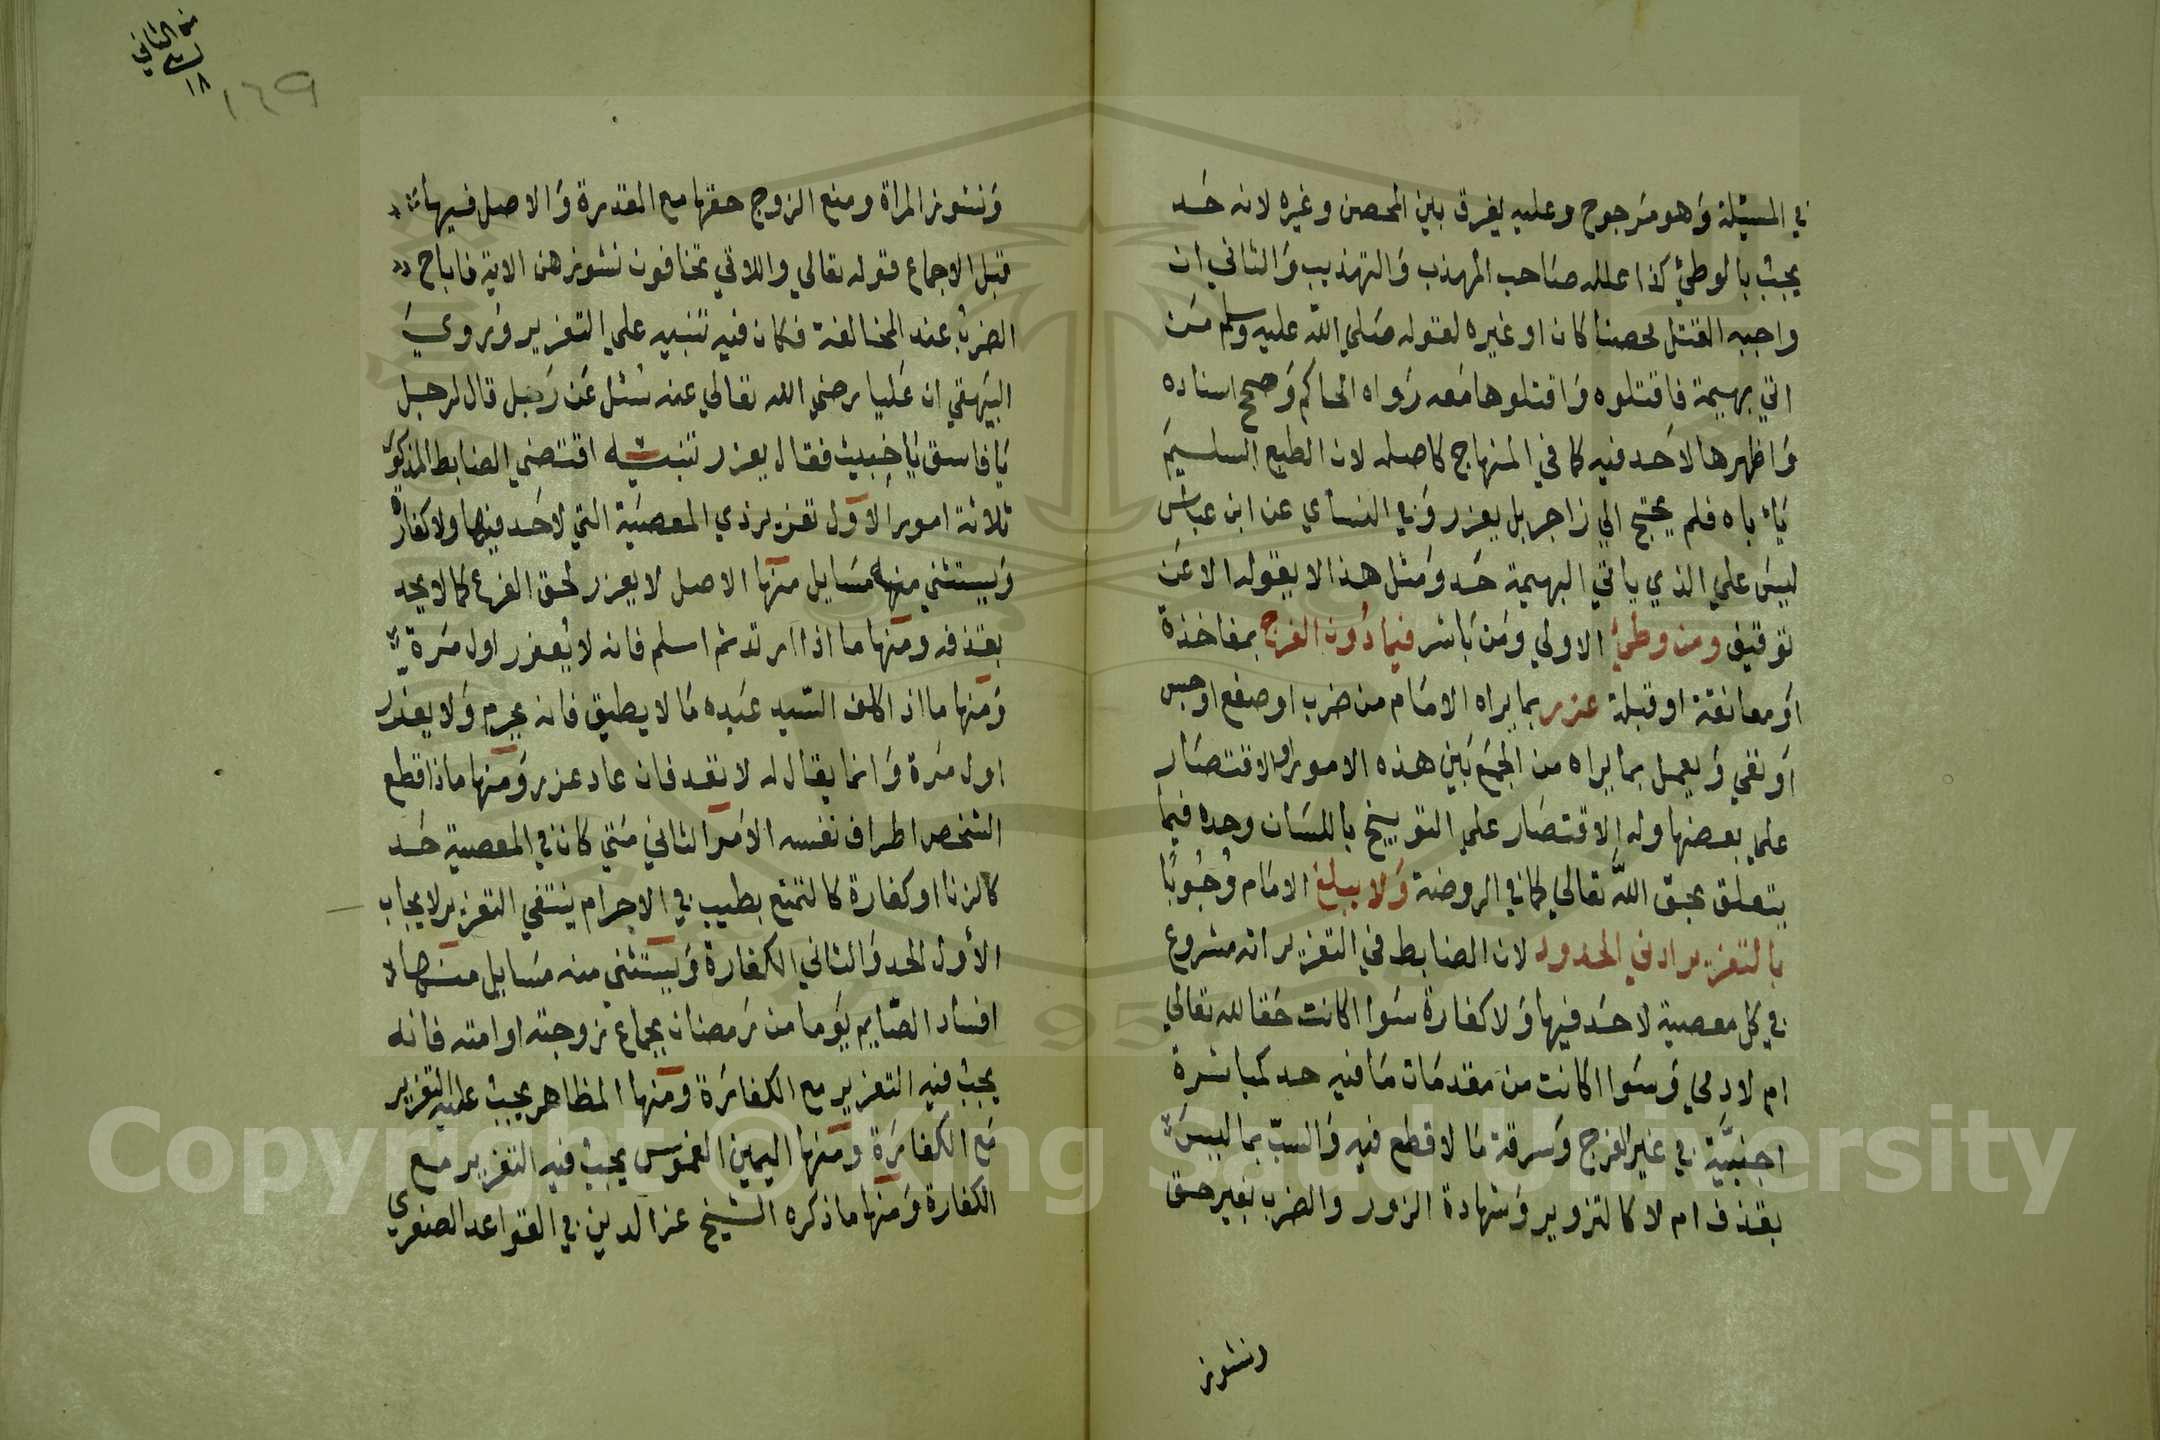 في المسئلة وهو مرجوح وعليه يفرق بين المحصن وغيره لانه حد
يجب بالوطئ كذا علله صاحب المهذب والتهذيب والثاني ان
واجبه القتل محصنا كان او غيره لقوله صلي الله عليه وسلم من
اتي بهيمة فاقتلوه واقتلوها معه رواه الحاكم وصحح اسناده
واظهرها لاحد فيه كما في المنهاج كاصله لان الطبع السليم
ياباه فلم يحتج الي زاجر بل يعزر وفي النسأي عن ابن عباس
ليس علي الذي ياتي البهيمة حد ومثل هذا لا يقوله الا عن
توقيف ومن وطئ الاولي ومن باشر فيما دون الفرج بمفاخذة
او معانقة او قبلة عزر بما يراه الامام من ضرب او صفع او حبس
او نفي ويعمل بما يراه من الجمع بين هذه الامور او الاقتصار
علي بعضها وله الاقتصار علي التوبيخ باللسان وحده فيما
يتعلق بحق الله تعالي كما في الروضة ولا يبلغ الامام وجوبا
بالتعزير ادني الحدود لان الضابط في التعزير انه مشروع
في كل معصية لا حد فيها ولا كفارة سوا اكانت حقا لله تعالي
ام لادمي وسوا اكانت من مقدمات ما فيه حد كمباشرة
اجنبية في غير الفرج وسرقة ما لا قطع فيه والسب بما ليس
بقذف ام لا كالتزوير وشهادة الزور والضرب بغير حق
ونشوز
من الثاني
١٨
١٦٩
ونشوز المراة ومنع الزوج حقها مع المقدرة والاصل فيها
قبل الاجماع قوله تعالي واللاتي تخافون نشوزهن الاية فاباح
الضرب عند المخالفة فكان فيه تنبيه علي التعزير وروي
البيهقي ان عليا رضي الله تعالي عنه سئل عن رجل قال لرجل
يا فاسق يا خبيث فقال يعزر تنبيه اقتضي الضابط المذكور
ثلاثة امور الاول تعزير ذي المعصية التي لا حد فيها ولا كفارة
ويستثني منها مسايل منها الاصل لا يعزر لحق الفرع كما لا يحد
بقذفه ومنها ما اذا ارتد ثم اسلم فانه لا يعزر اول مرة
ومنها ما اذا كلف السيد عبده ما لا يطيق فانه يحرم ولا يعزر
اول مرة وانما يقال له لا تعد فان عاد عزر ومنها ماذا قطع
الشخص اطراف نفسه الامر الثاني متي كان في المعصية حد
كالزنا او كفارة كالتمتع بطيب في الاحرام ينتفي التعزير لايجاب
الأول الحد والثاني الكفارة ويستثني منه مسايل منها
افساد الصايم يوما من رمضان بجماع زوجته او امته فانه
يجب فيه التعزير مع الكفارة ومنها المظاهر يجب عليه التعزير
مع الكفارة ومنها اليمين الغموس يجب فيه التعزير مع
الكفارة ومنها ما ذكره الشيخ عز الدين في القواعد الصغري
Copyright © King Saud University
1957